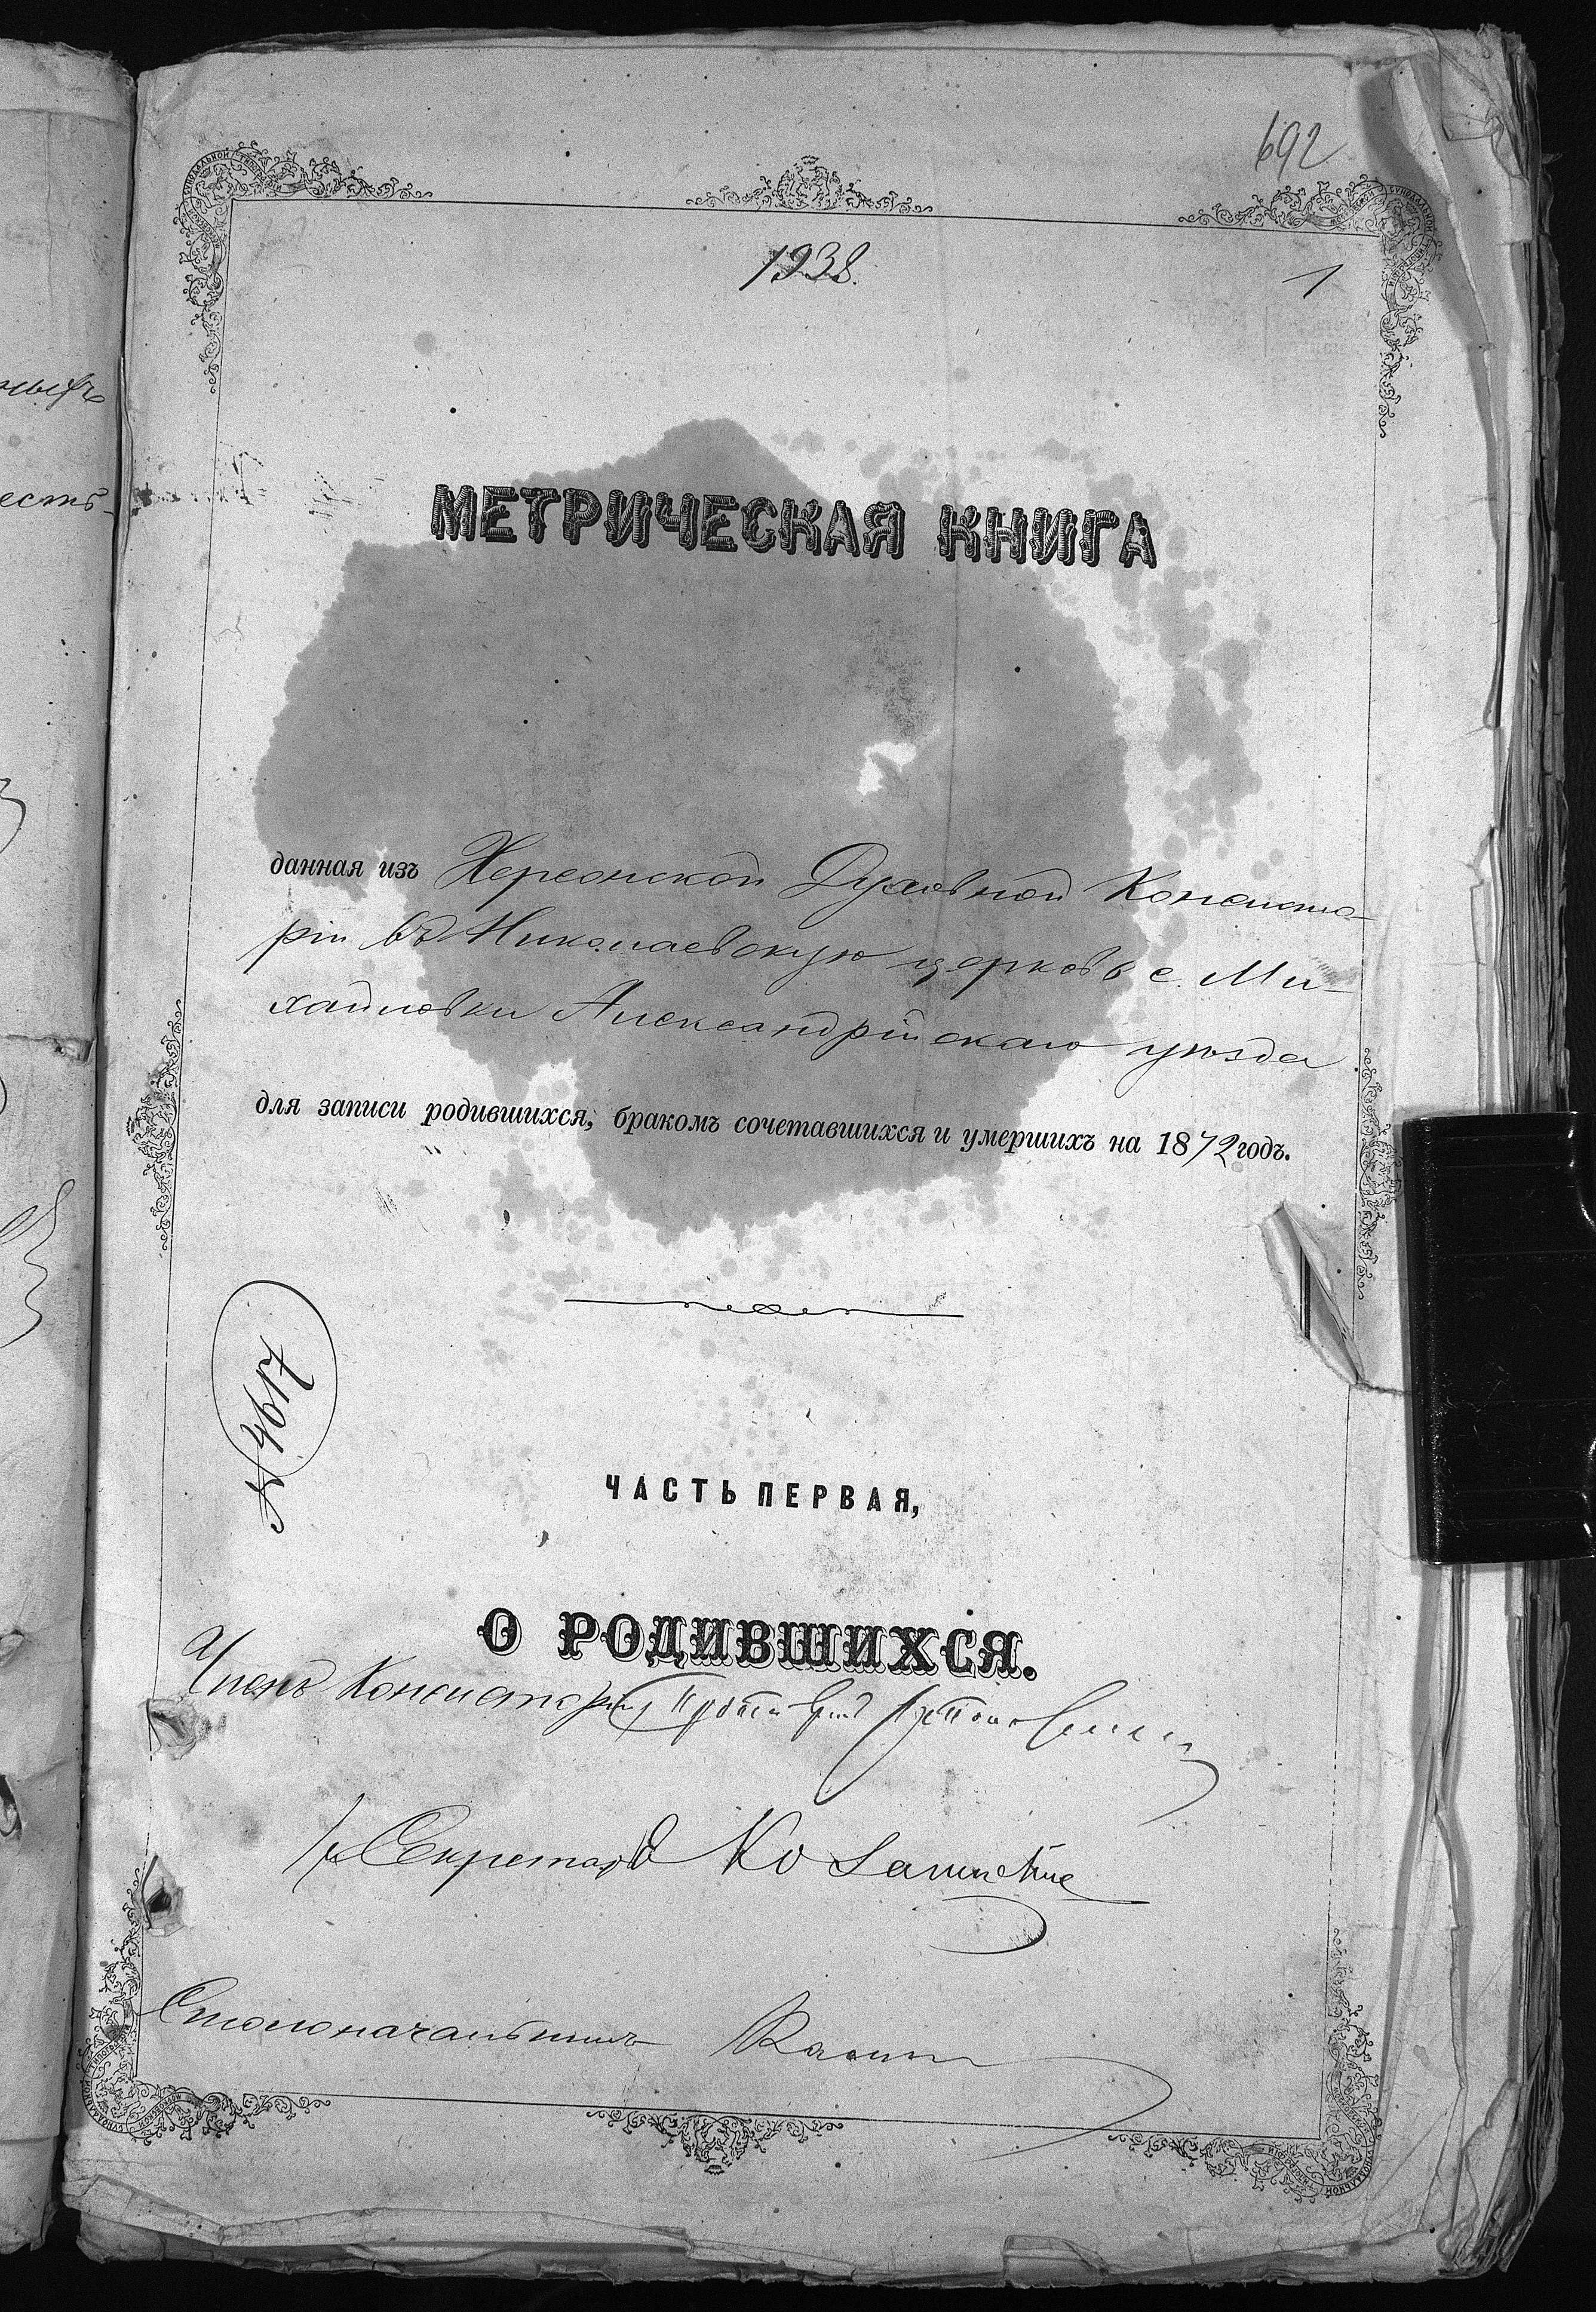 692
1938.
1
МЕТРИЧЕСКАЯ КНИГА
данная изъ Херсонской Духовной Консисто-
ріи въ Николаевскую церковь с. Ми-
хайловки Александрійскаго уѣзда
для записи родившихся, бракомъ сочетавшихся и умершихъ на 1872 годъ.
№ 4617
ЧАСТЬ ПЕРВАЯ,
О РОДИВШИХСЯ.
Членъ Консисторіи Протоіерей
Секретарь
Столоначальникъ